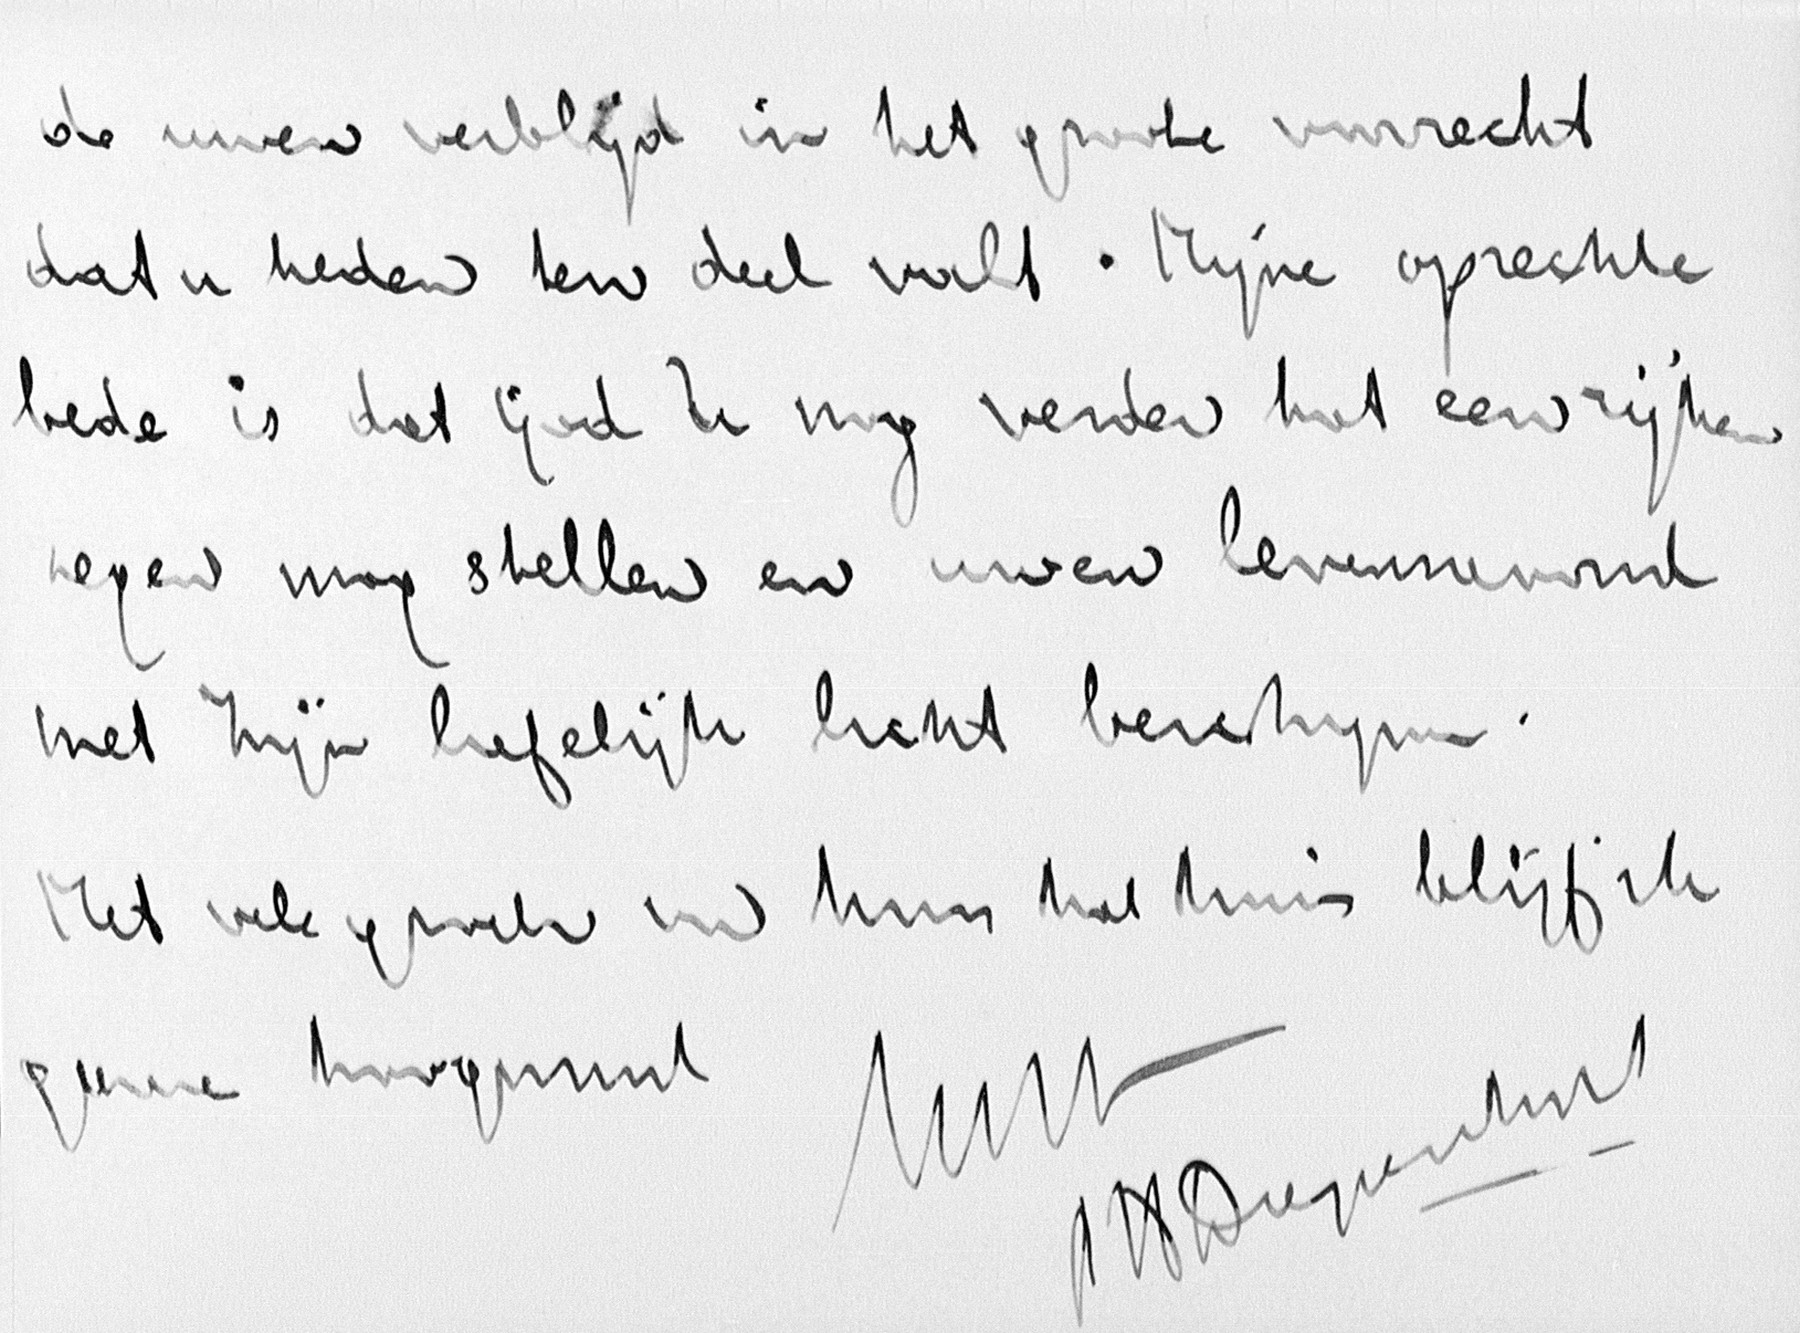 de uwen verblijd in het groote voorrecht
dat u heden ten deel valt. Mijne oprechte
bede is dat God U nog verder tot een rijken
zegen mag stellen en uwen levensavond
met Zijn liefelijk licht beschijnen.
Met vele groeten van huis tot huis blijf ik
gaarne hoogachtend
Diepenhorst